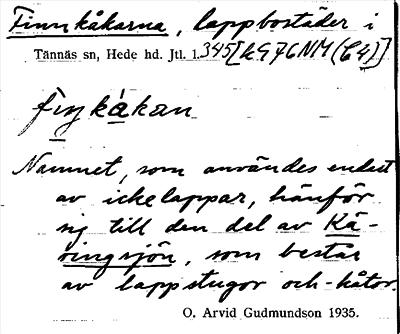 Finnkåkarna, lappbostäder i
Tännäs sn, Hede hd. Jtl. 1.345[k976NM(C4)]
Namnet, som användes endast
av ickelappar, hänför
sig till den del av Kä-
ringsjön, som består
av lappstugor och kåtor.
O. Arvid Gudmundson 1935.